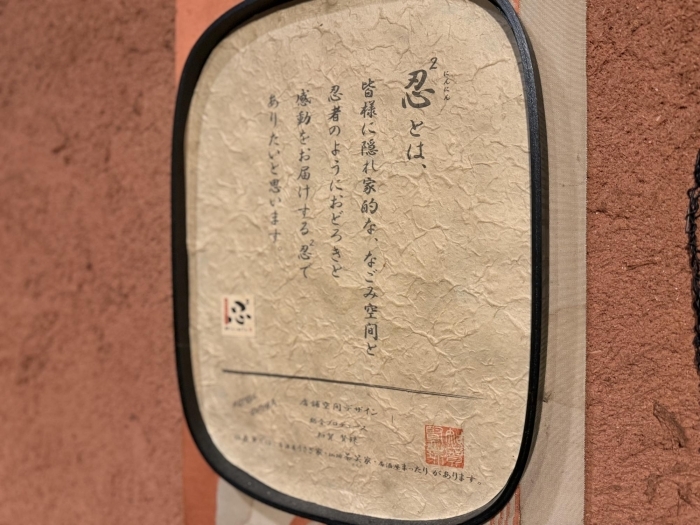 忍²とは、
にんにん
皆様に隠れ家的な、なごみ空間と
忍者のようにおどろきと
感動をお届けする“忍”で
ありたいと思います
忍
店舗空間デザイン
総合プロデュース
があります。